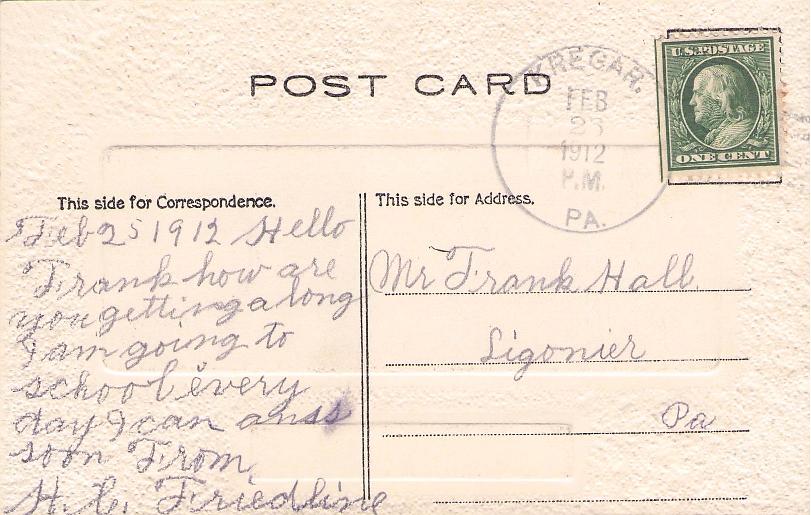 POST CARD
KREGAR.
FEB
1912
P.M.
PA.
U.S. POSTAGE
ONE CENT
This side for Correspondence.
This side for Address.
Feb 25 1912 Hello
Frank how are
you getting a long
I am going to
school every
day I can
soon From
H. C. Friedline
Mr Frank Hall
Ligonier
Pa